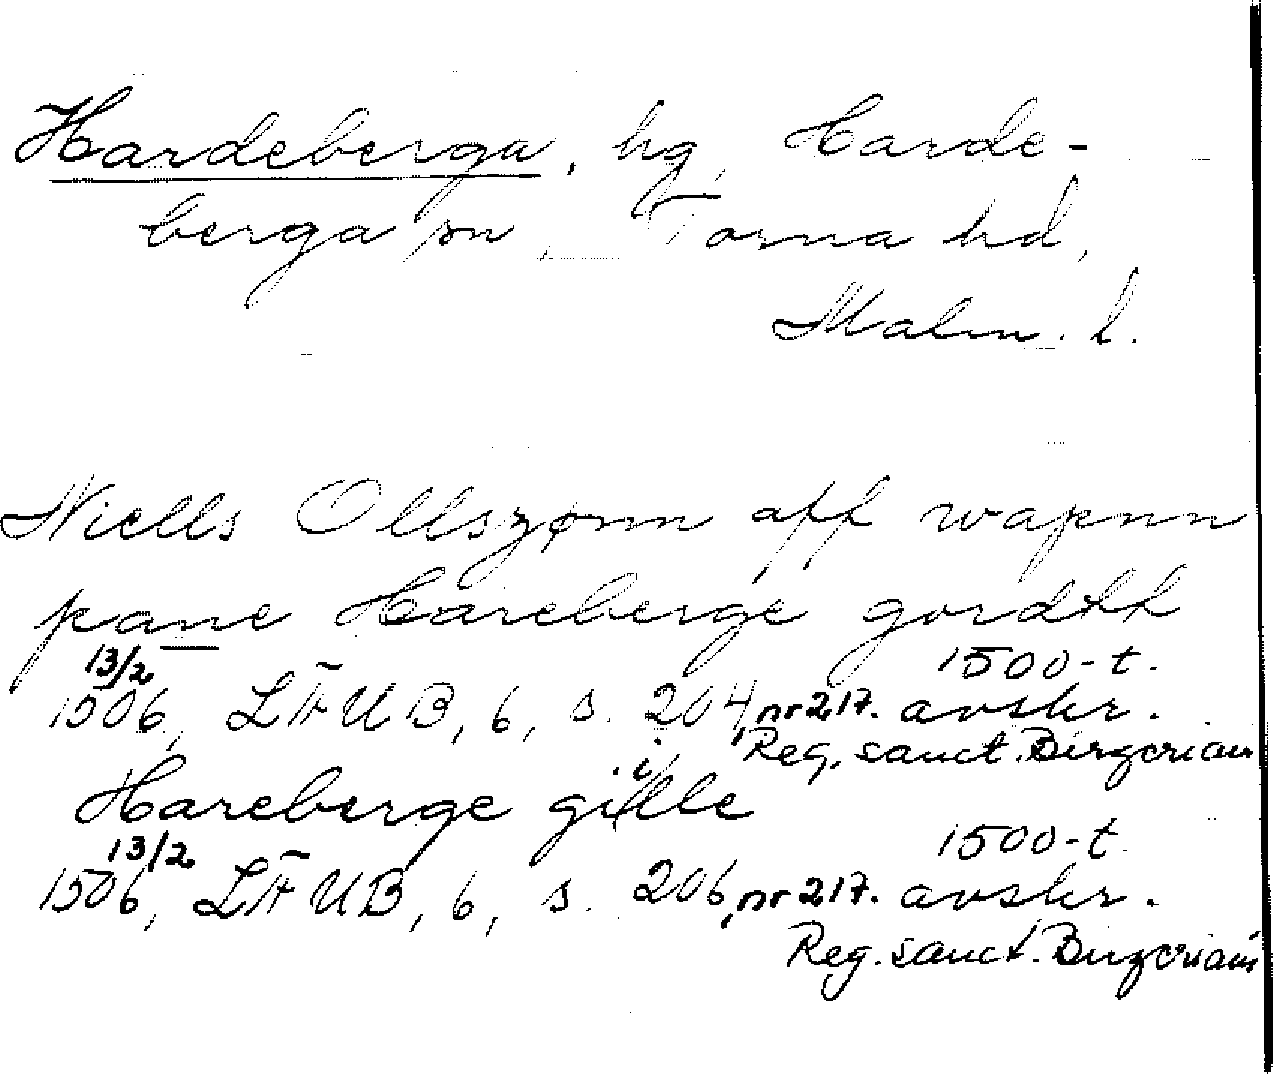 Hardeberga, hg, Harde-
berga sn, Torna hd,
Malm. l.
Niells Ollszønn aff wapnn
pane Hareberge gordtt
13/2 1500-t.
1506, LÄUB, 6, s. 204, nr 217. avskr.
Reg. sanct. Birgeriani
Hareberge gille
i
13/2 1500-t.
1506, LÄUB, 6, s. 206, nr 217. avskr.
Reg. sanct. Birgeriani